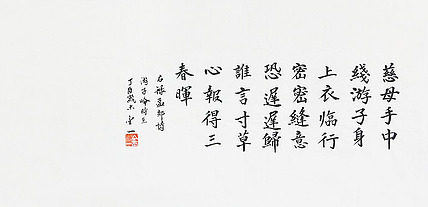 慈母手中
綫游子身
上衣臨行
密密縫意
恐遲遲歸
誰言寸草
心報得三
春暉
右錄孟郊詩
游子吟
丁酉歲末